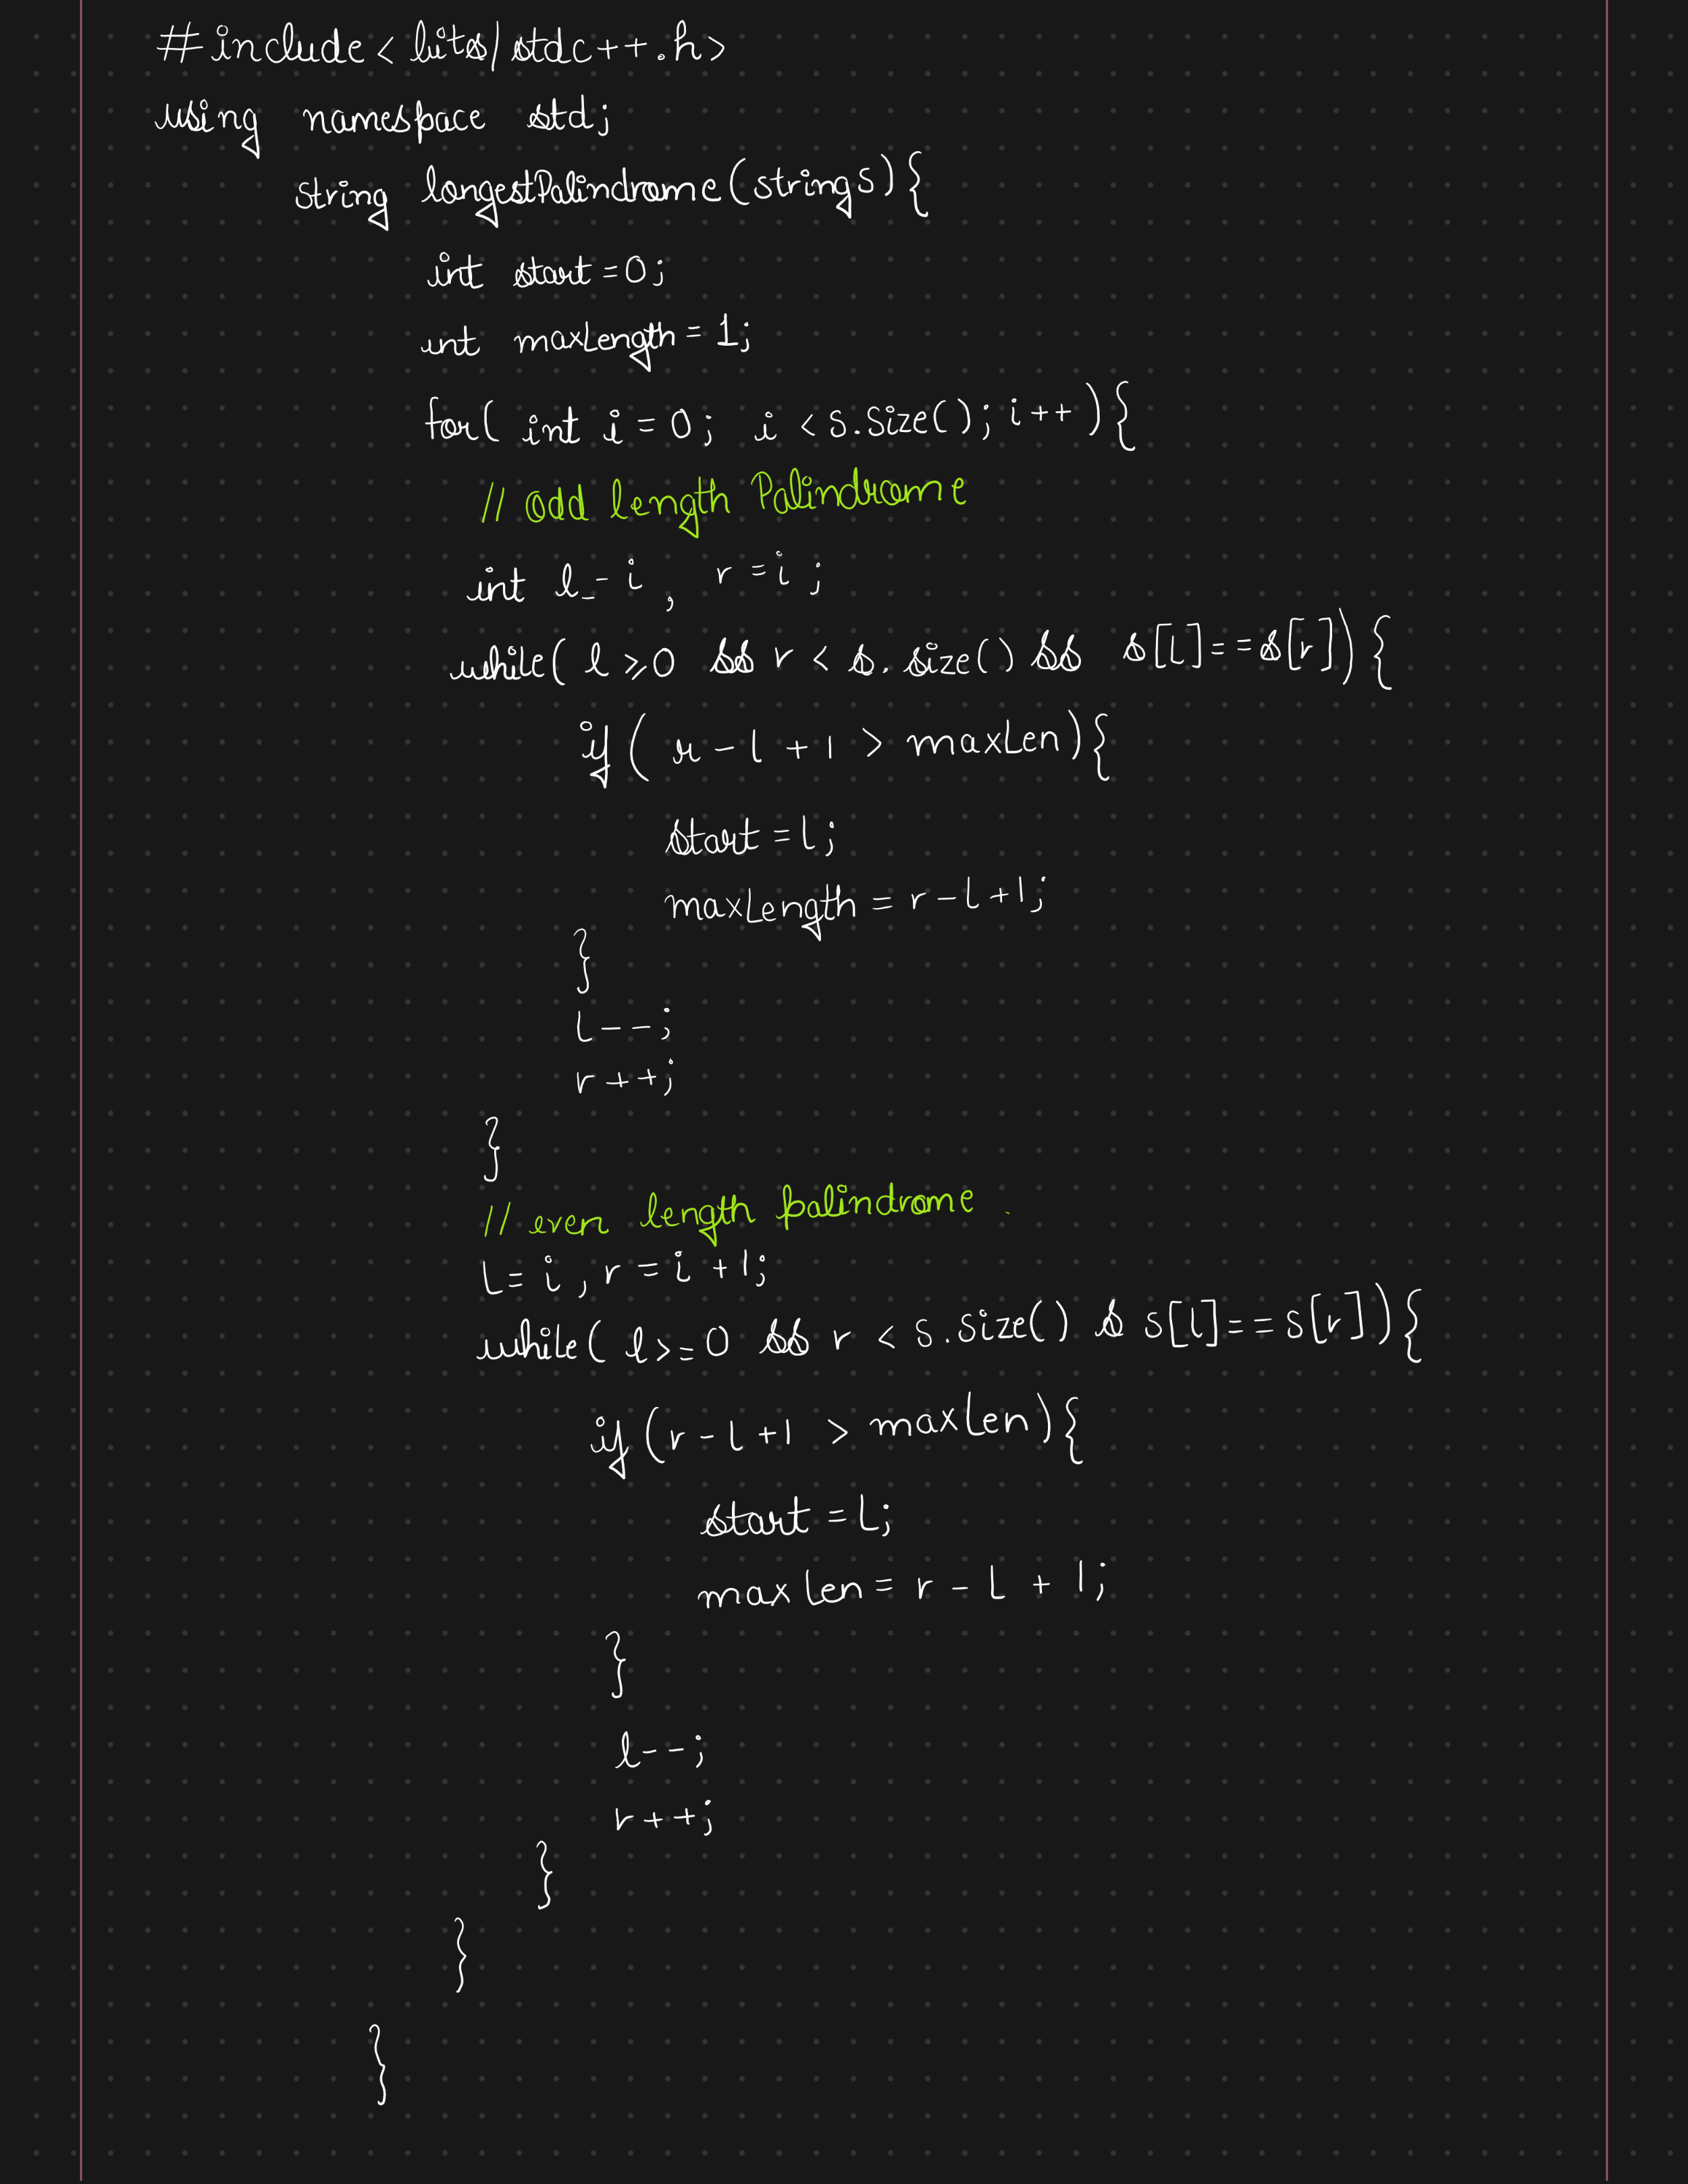 #include<bits/stdc++.h>
using namespace std;
string longestPalindrome(string s){
int start=0;
int maxLength=1;
for(int i=0; i<s.size(); i++){
// odd length Palindrome
int l=i, r=i;
while(l≥0 && r<s.size() && s[l]==s[r]){
if(r-l+1 > maxLen){
start=l;
maxLength=r-l+1;
}
l--;
r++;
}
// even length palindrome.
l=i, r=i+1;
while(l>=0 && r<s.size() & s[l]==s[r]){
if(r-l+1 > maxLen){
start=l;
maxLen=r-l+1;
}
l--;
r++;
}
}
}